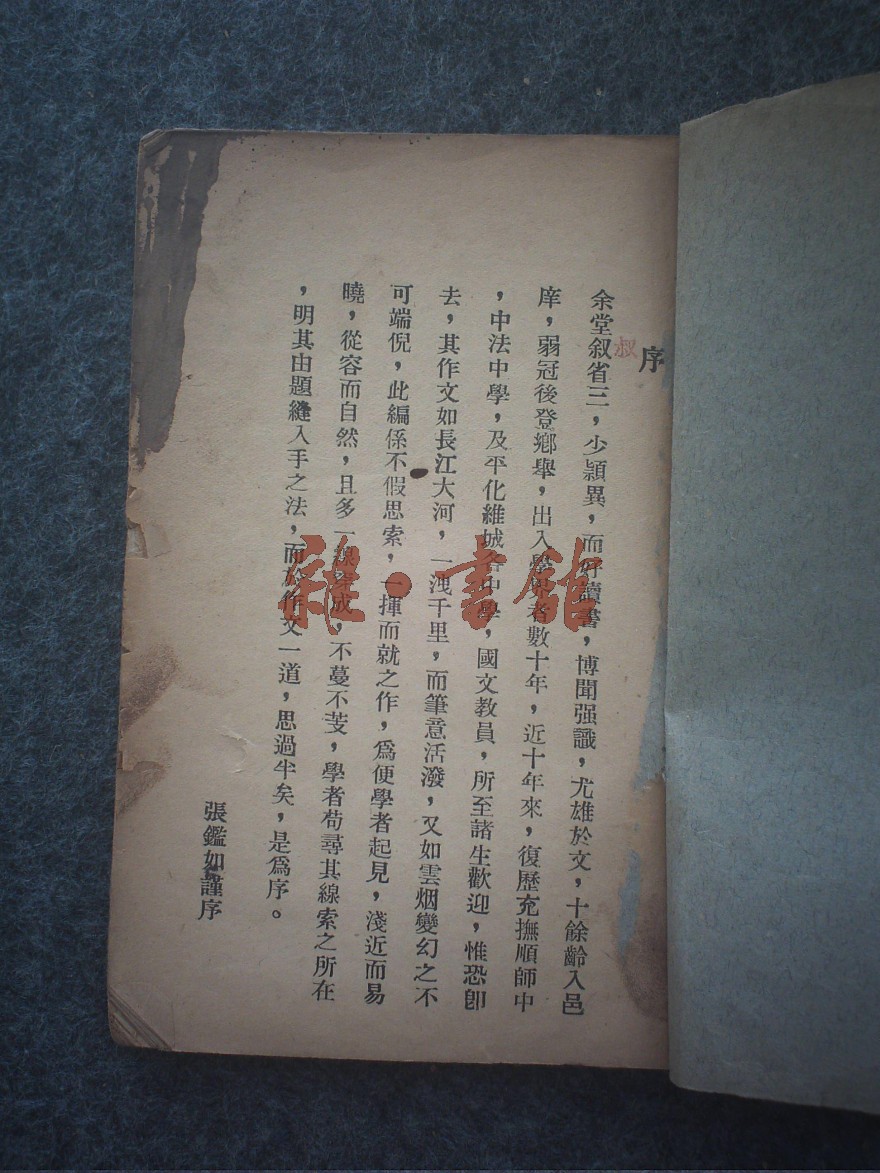 序
叔
余堂叙省三，少頴異，而好讀書，博聞强識，尤雄於文，十餘齡入邑
庠，弱冠後登鄉舉，出入學界者數十年，近十年來，復歷充撫順師中
，中法中學，及平化維城各中學，國文教員，所至諸生歡迎，惟恐卽
去，其作文如長江大河，一洩千里，而筆意活潑，又如雲烟變幻之不
可端倪，此編係不假思索，一揮而就之作，爲便學者起見，淺近而易
曉，從容而自然，且多一線穿成，不蔓不芰，學者苟尋其線索之所在
，明其由題縫入手之法，而於作文一道，思過半矣，是爲序。
張鑑如謹序
雜·書館